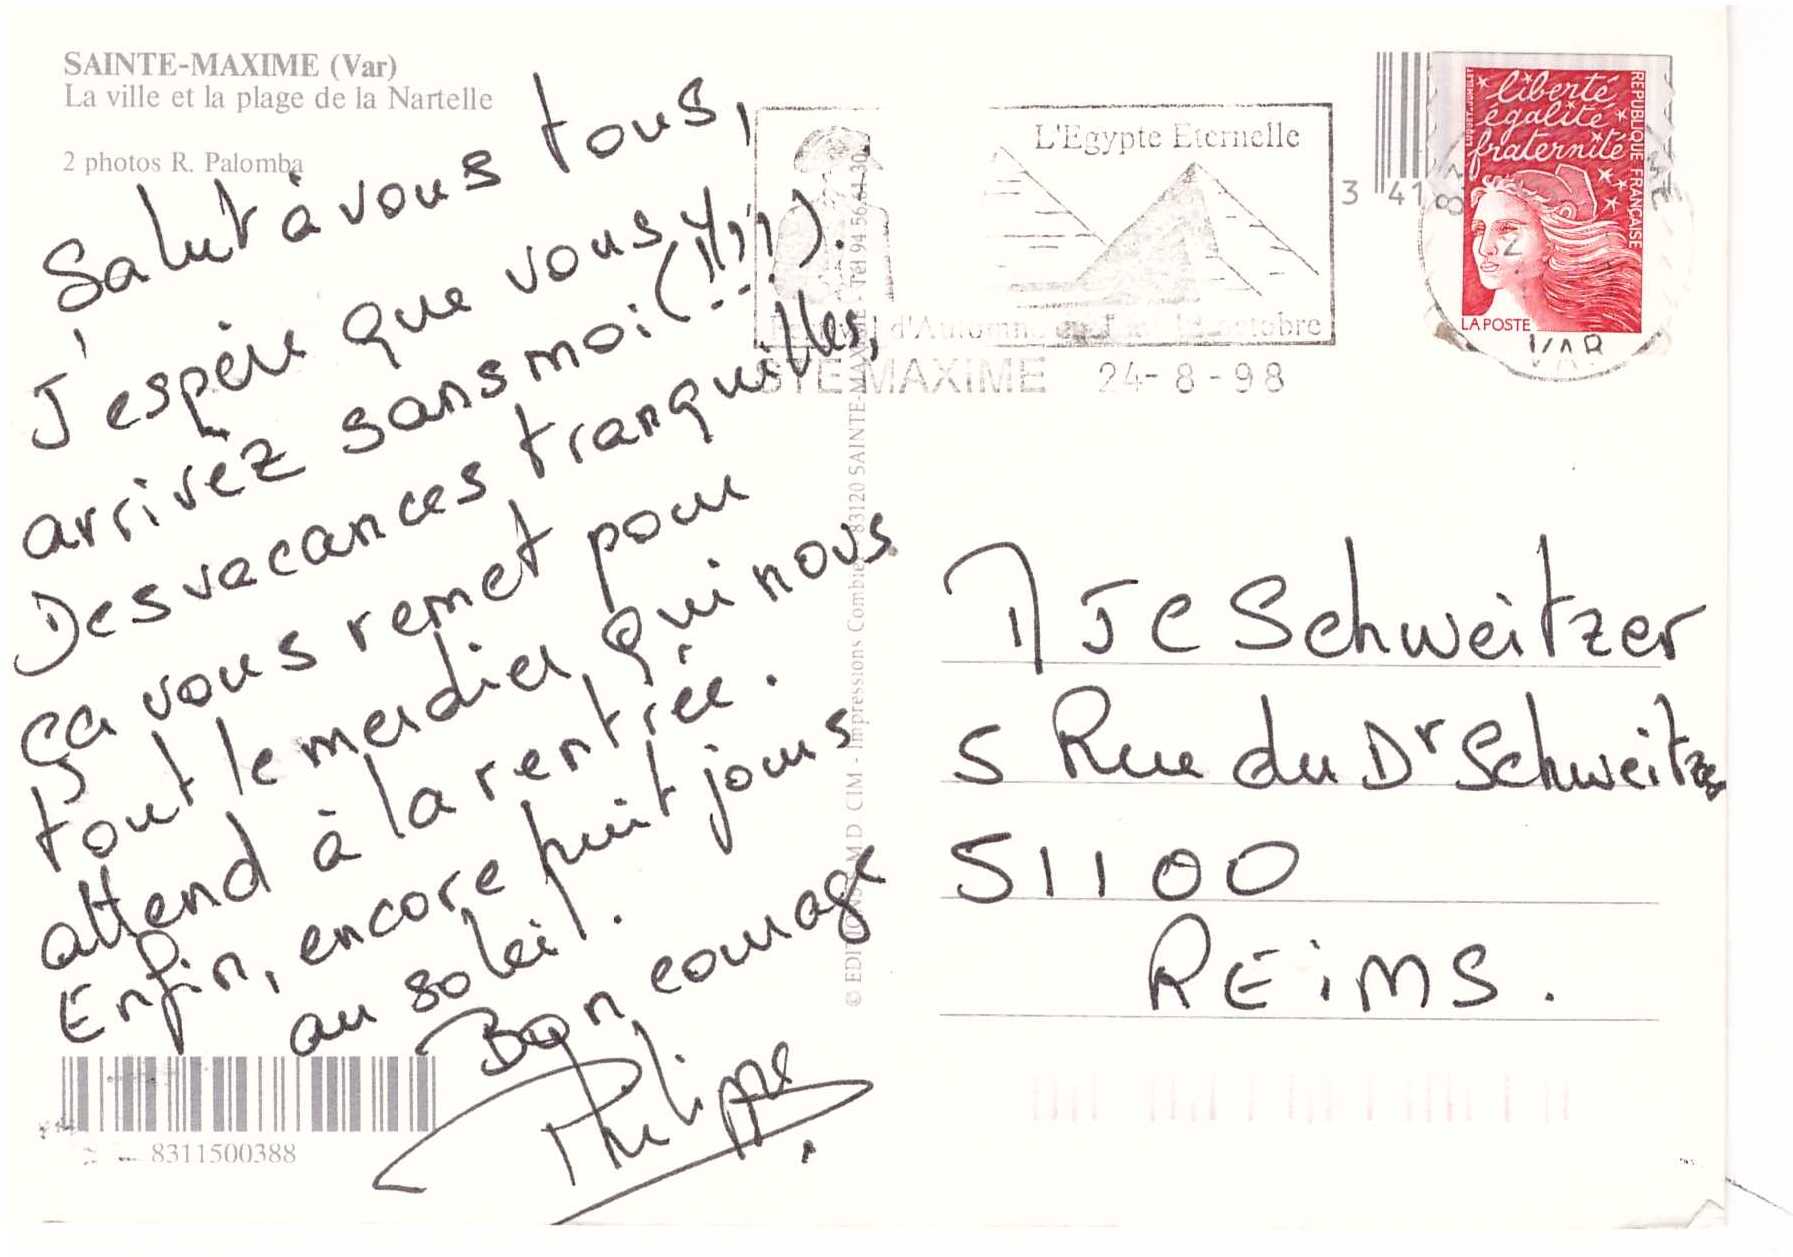 SAINTE-MAXIME (Var)
La ville et la plage de la Nartelle
2 photos R. Palomba
Salut à vous tous,
J'espère que vous y
arrivez sans moi (!!!!).
Des vacances tranquilles,
ça vous remet pour
tout le merdier qui nous
attend à la rentrée.
Enfin, encore huit jours
au soleil.
Bon courage
Philippe
8311500388
© EDITIONS M.D CIM - Impressions Combier 83120 SAINTE-MAXIME - Tél 94 56 61 30
L'Egypte Eternelle
Festival d'Automne octobre
STE MAXIME 24-8-98
3 41
liberté
égalité
fraternité
REPUBLIQUE FRANÇAISE
LA POSTE
VAR
M JC Schweitzer
5 Rue du Dr Schweitzer
51100
REIMS.